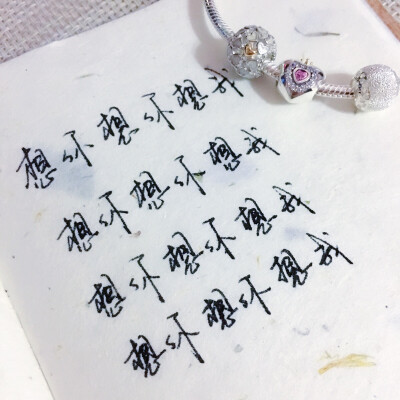 想你想你想我
想你想你想我
想你想你想我
想你想你想我